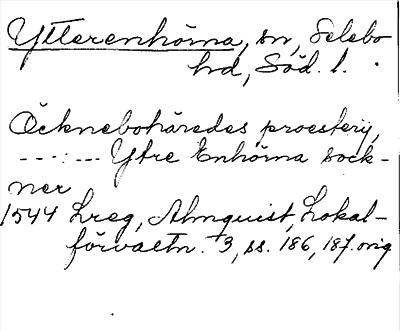 Ytterenhörna, sn, Selebo
hd, Söd. l.
Öcknebohäredes proesterij,
---:--- Ytre Enhörna sock-
ner
1544 Lreg, Almquist, Lokal-
förvaltn. 3, ss. 186, 187. orig